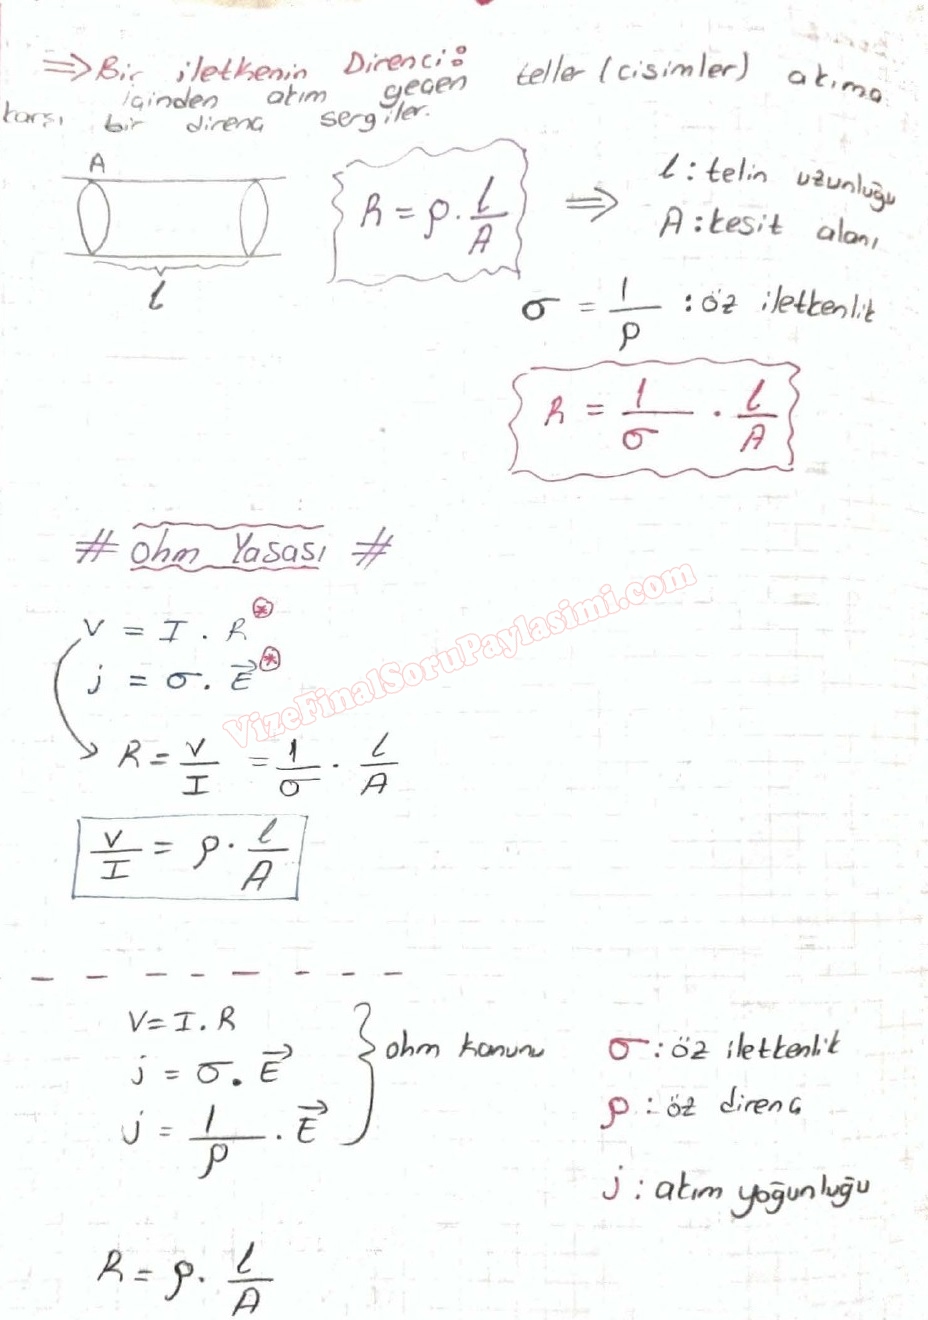 ⇒ Bir iletkenin Direnci: teller (cisimler) akıma
içinden akım geçen
karşı bir direnç sergiler.
A
l
R = ρ . l/A ⇒ l : telin uzunluğu
A : kesit alanı
σ = 1/ρ : öz iletkenlik
R = 1/σ . l/A
# Ohm Yasası #
V = I . R *
j = σ . E⃗ *
R = V/I = 1/σ . l/A
V/I = ρ . l/A
VizeFinalSoruPaylasimi.com
V = I . R
j = σ . E⃗
j = 1/ρ . E⃗
ohm kanunu
σ : öz iletkenlik
ρ : öz direnç
j : akım yoğunluğu
R = ρ . l/A